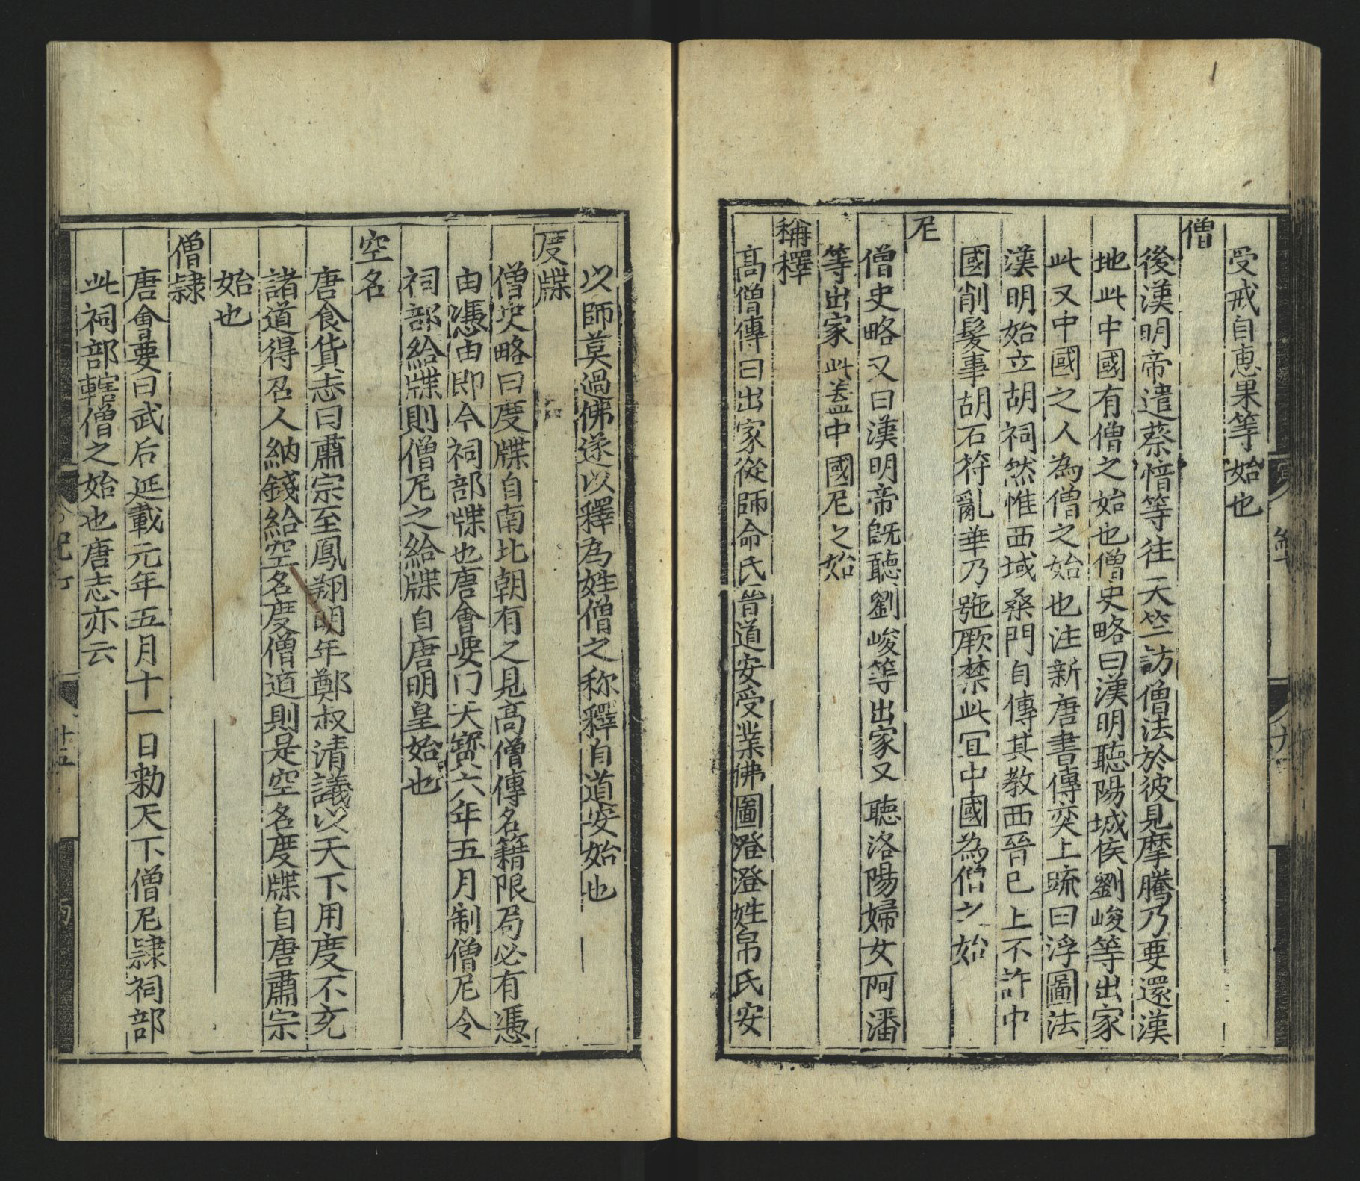 受戒自惠果等始也
僧
後漢明帝遣蔡愔等往天竺訪僧法於彼見摩騰乃要還漢
地此中國有僧之始也僧史略曰漢明聽陽城侯劉峻等出家
此又中國之人為僧之始也注新唐書傳奕上䟽曰浮圖法
漢明始立胡祠然惟西域桑門自傳其教西晉已上不許中
國削髮事胡石符亂華乃㢮厥禁此冝中國為僧之始
尼
僧史略又曰漢明帝旣聽劉峻等出家又聽洛陽婦女阿潘
等出家此盖中國尼之始
稱釋
髙僧傳曰出家從師命氏晉道安受業佛圖澄澄姓帛氏安
以師莫過佛遂以釋為姓僧之称釋自道安始也
度牒
僧史略曰度牒自南北朝有之見髙僧傳名籍限局必有憑
由憑由即今祠部牒也唐會要曰天寳六年五月制僧尼令
祠部給牒則僧尼之給牒自唐明皇始也
空名
唐食貨志曰肅宗至鳳翔明年鄭叔清議以天下用度不充
諸道得召人納錢給空名度僧道則是空名度牒自唐肅宗
始也
僧隷
唐會要曰武后延載元年五月十一日勑天下僧尼隷祠部
此祠部轄僧之始也唐志亦云